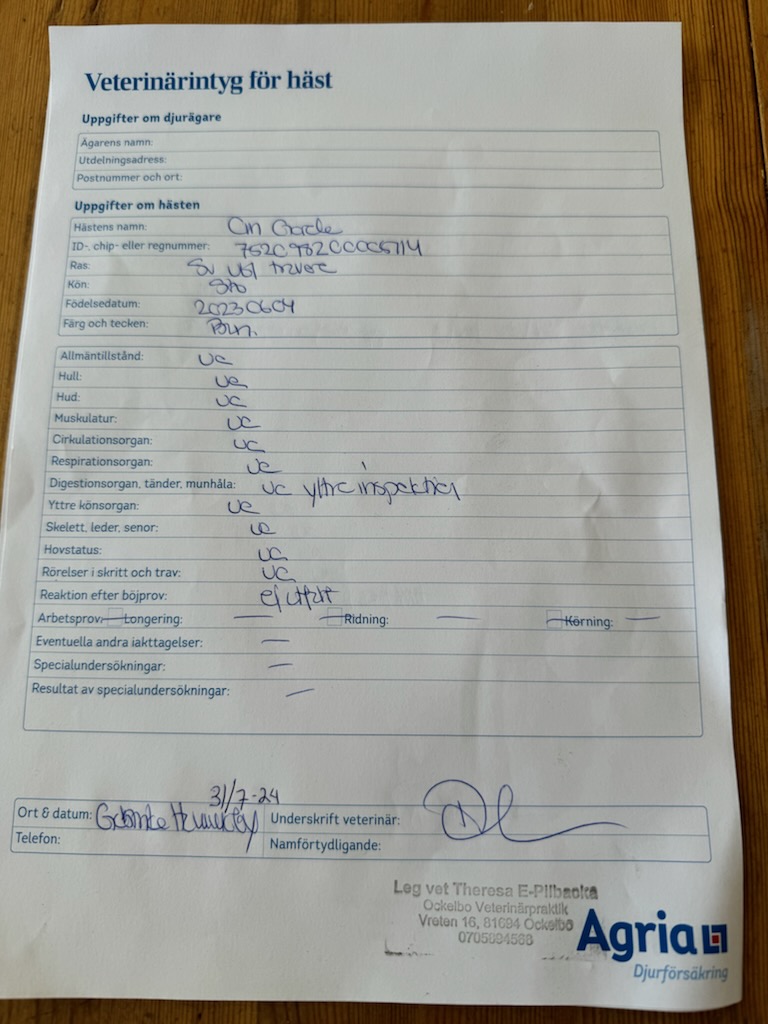 Veterinärintyg för häst
Uppgifter om djurägare
Ägarens namn:
Utdelningsadress:
Postnummer och ort:
Uppgifter om hästen
Hästens namn:
ID-, chip- eller regnummer:
Ras: Sv
Kön: Sto
Födelsedatum: 20230604
Färg och tecken: Brun.
Allmäntillstånd: ua
Hull: ua
Hud: ua
Muskulatur: ua
Cirkulationsorgan: ua
Respirationsorgan: ua
Digestionsorgan, tänder, munhåla: ua yttre inspektion
Yttre könsorgan: ua
Skelett, leder, senor: ua
Hovstatus: ua
Rörelser i skritt och trav: ua
Reaktion efter böjprov: ej utfört
Arbetsprov: Longering: — Ridning: — Körning: —
Eventuella andra iakttagelser: —
Specialundersökningar: —
Resultat av specialundersökningar: —
31/7-24
Ort & datum: Underskrift veterinär:
Telefon: Namförtydligande:
Leg vet Theresa E-Pilbacka
Ockelbo Veterinärpraktik
Vreten 16, 81694 Ockelbo
Agria
Djurförsäkring